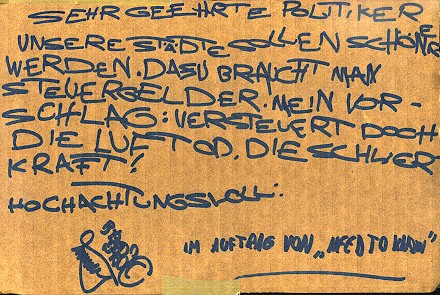 SEHR GEEHRTE POLITIKER
UNSERE STÄDTE SOLLEN SCHÖNER
WERDEN. DASU BRAUCHT MAN
STEUERGELDER. MEIN VOR-
SCHLAG: VERSTEUERT DOCH
DIE LUFT OD. DIE SCHWER
KRAFT!
HOCHACHTUNGSVOLL:
IM AUFTRAG VON „NEED TO KNOW"